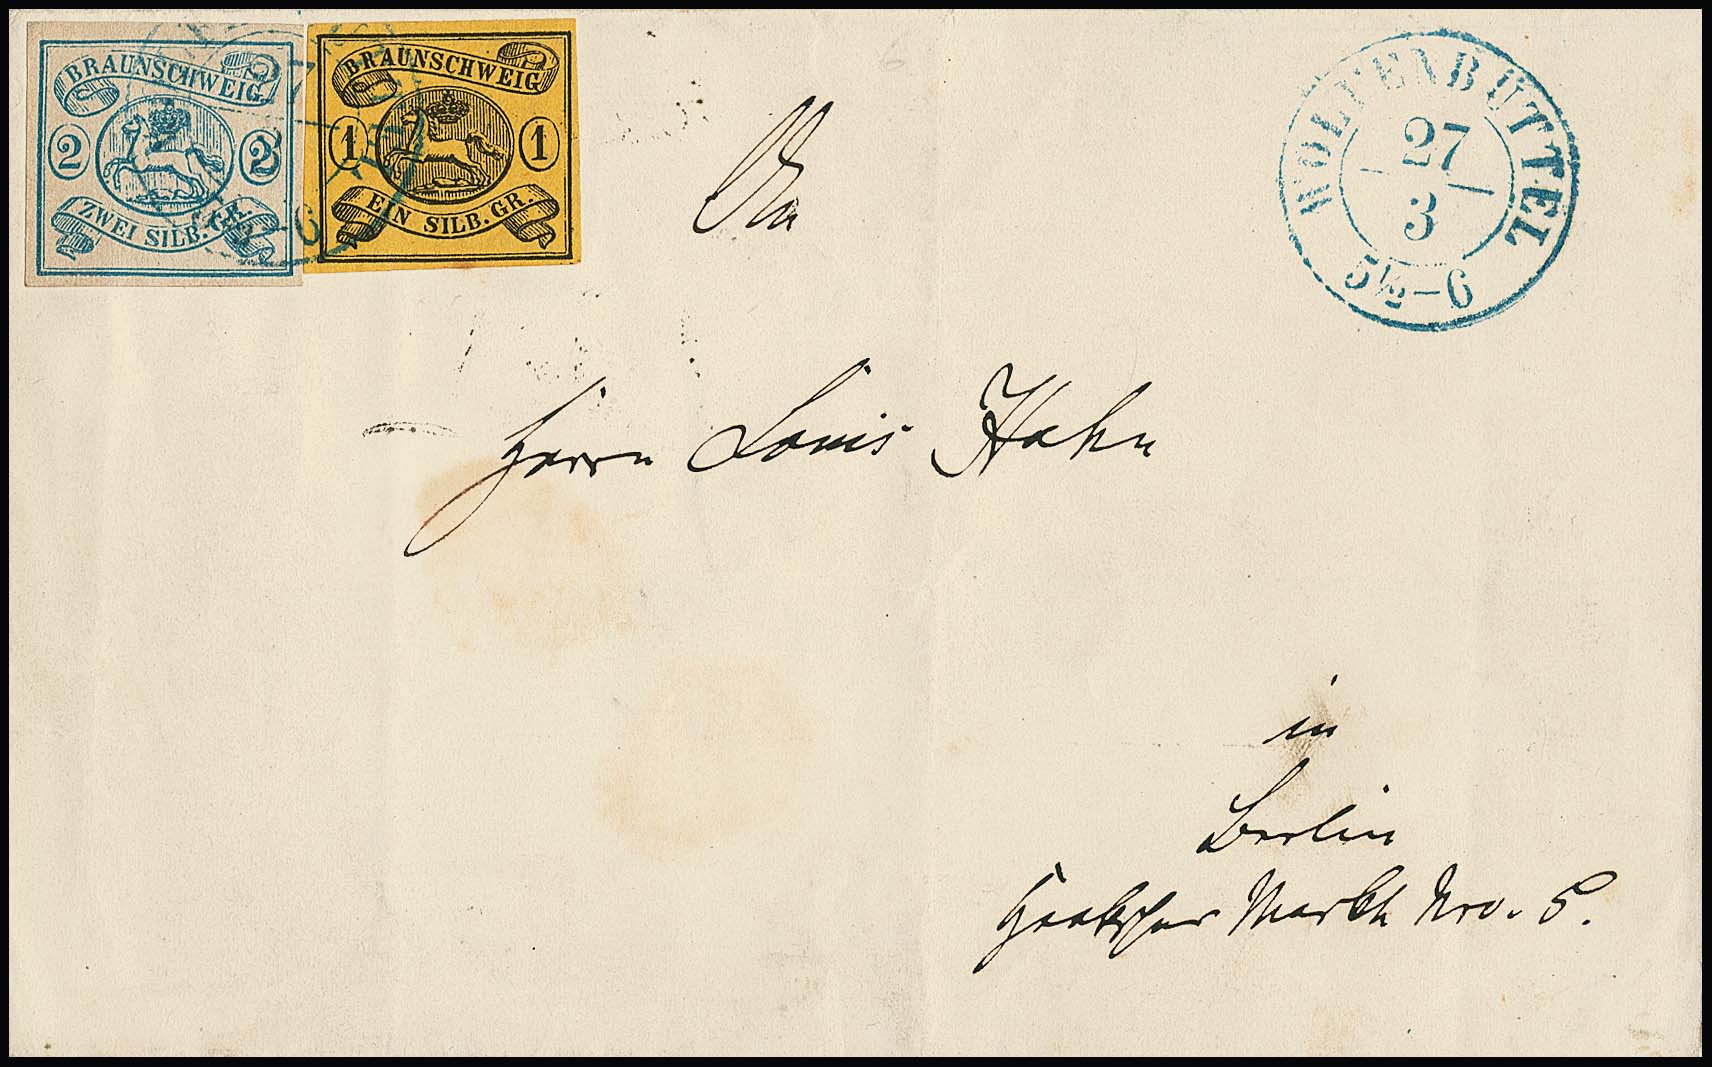 BRAUNSCHWEIG
2 2
ZWEI SILB. GR.
BRAUNSCHWEIG
1 1
EIN SILB. GR.
WOLFENBÜTTEL
27
3
5½-6
An
Herrn Louis Hahn
in
Berlin
Haakscher Markt Nro. 5.